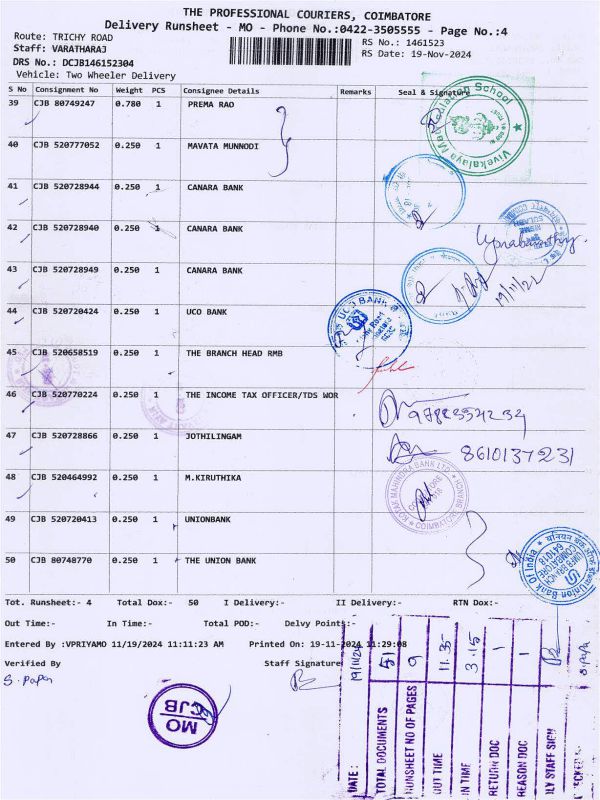 THE PROFESSIONAL COURIERS, COIMBATORE
Delivery Runsheet - MO - Phone No.:0422-3505555 - Page No.:4
Route: TRICHY ROAD
RS No.: 1461523
Staff: VARATHARAJ
RS Date: 19-Nov-2024
DRS No.: DCJB146152304
Vehicle: Two Wheeler Delivery
S No Consignment No Weight PCS Consignee Details Remarks Seal & Signature
39 CJB 80749247 0.780 1 PREMA RAO
40 CJB 520777052 0.250 1 MAVATA MUNNODI
41 CJB 520728944 0.250 1 CANARA BANK
42 CJB 520728940 0.250 1 CANARA BANK
43 CJB 520728949 0.250 1 CANARA BANK
19/11/24
44 CJB 520720424 0.250 1 UCO BANK
UCO BANK
45 CJB 520658519 0.250 1 THE BRANCH HEAD RMB
46 CJB 520770224 0.250 1 THE INCOME TAX OFFICER/TDS WOR
47 CJB 520728866 0.250 1 JOTHILINGAM
8610137231
48 CJB 520464992 0.250 1 M.KIRUTHIKA
KOTAK MAHINDRA BANK LTD.
COIMBATORE
49 CJB 520720413 0.250 1 UNIONBANK
50 CJB 80748770 0.250 1 THE UNION BANK
Union Bank Of India
COIMBATORE
641018
Tot. Runsheet:- 4 Total Dox:- 50 I Delivery:- II Delivery:- RTN Dox:-
Out Time:- In Time:- Total POD:- Delvy Points:-
Entered By :VPRIYAMO 11/19/2024 11:11:23 AM Printed On: 19-11-2024 11:29:08
Verified By Staff Signature
MO
CJB
DATE : 19/11/24
TOTAL DOCUMENTS 51
RUNSHEET NO OF PAGES 9
OUT TIME 11.35
IN TIME 3.15
RETURN DOC 1
REASON DOC 1
DLY STAFF SIGN